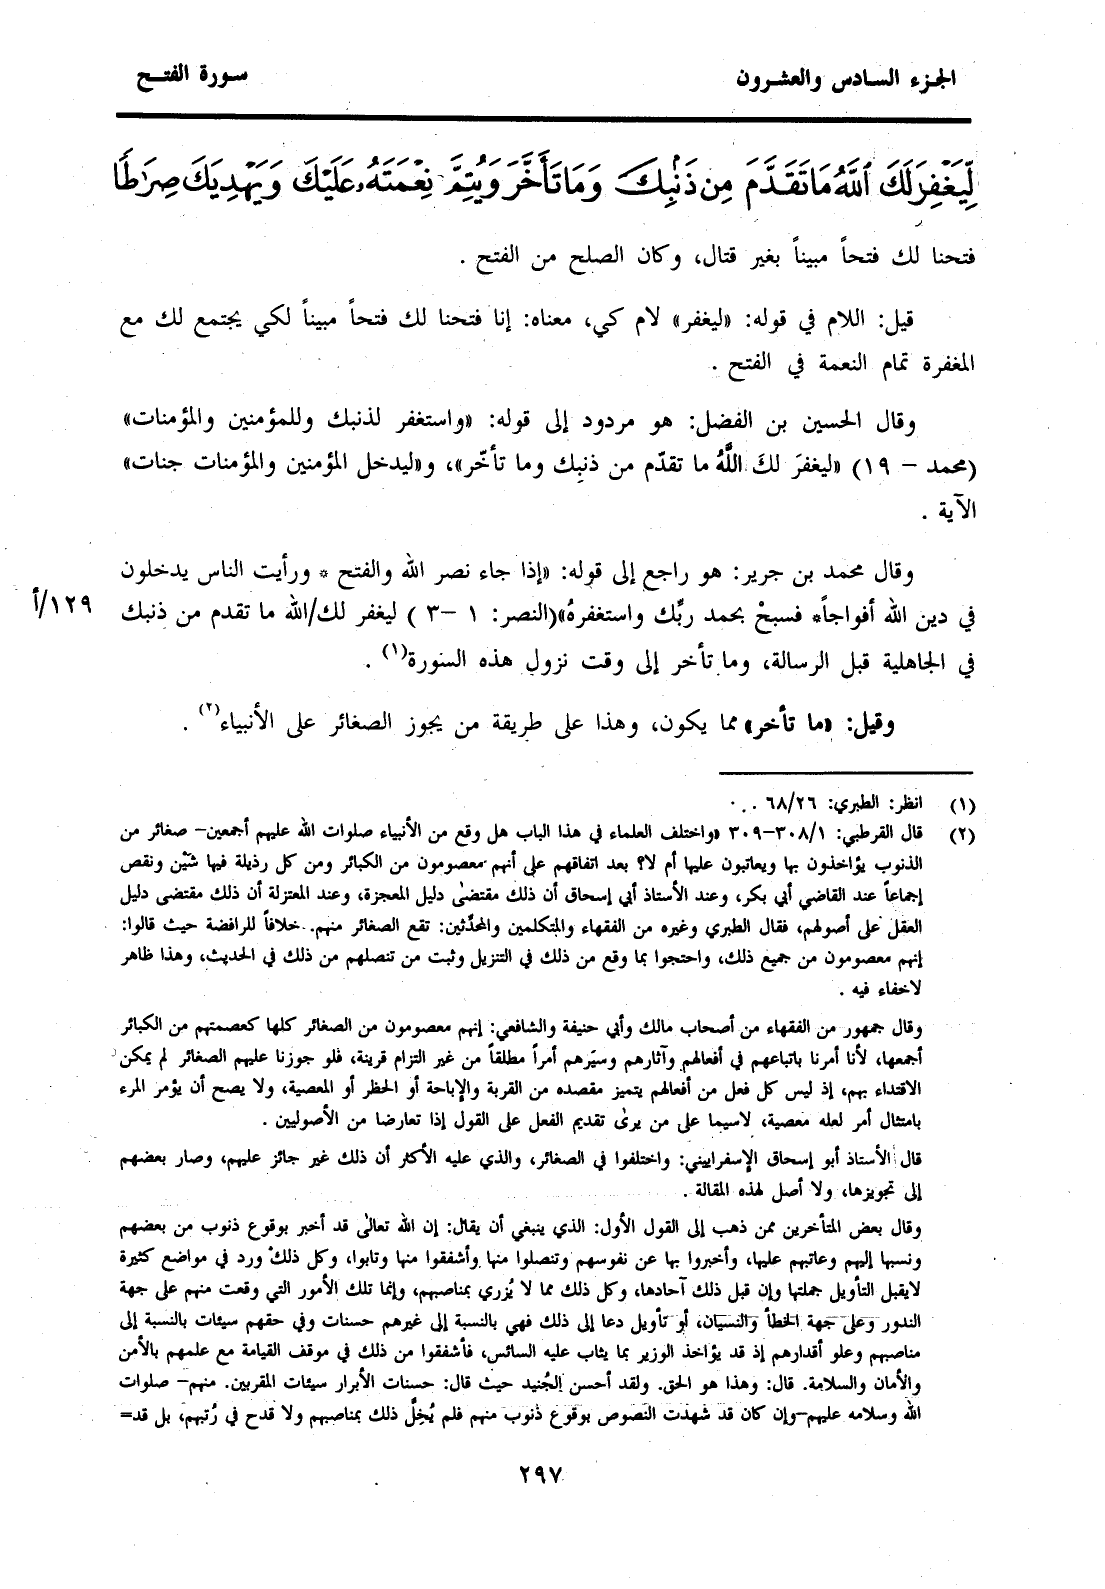 الجزء السادس والعشرون
سورة الفتح
لِّيَغْفِرَ لَكَ ٱللَّهُ مَا تَقَدَّمَ مِن ذَنۢبِكَ وَمَا تَأَخَّرَ وَيُتِمَّ نِعْمَتَهُۥ عَلَيْكَ وَيَهْدِيَكَ صِرَٰطًا
فتحنا لك فتحاً مبيناً بغير قتال، وكان الصلح من الفتح .
قيل: اللام في قوله: «ليغفر» لام كي، معناه: إنا فتحنا لك فتحاً مبيناً لكي يجتمع لك مع
المغفرة تمام النعمة في الفتح .
وقال الحسين بن الفضل: هو مردود إلى قوله: «واستغفر لذنبك وللمؤمنين والمؤمنات»
(محمد – ١٩) «ليغفرَ لكَ اللَّهُ ما تقدّم من ذنبِك وما تأخّر»، و«ليدخل المؤمنين والمؤمنات جنات»
الآية .
وقال محمد بن جرير: هو راجع إلى قوله: «إذا جاء نصر الله والفتح * ورأيت الناس يدخلون
في دين الله أفواجاً* فسبحْ بحمد ربِّك واستغفرهُ»(النصر: ١ –٣ ) ليغفر لك/الله ما تقدم من ذنبك
١٢٩/أ
في الجاهلية قبل الرسالة، وما تأخر إلى وقت نزول هذه السورة(١) .
وقيل: «ما تأخر» مما يكون، وهذا على طريقة من يجوز الصغائر على الأنبياء(٢) .
(١) انظر: الطبري: ٦٨/٢٦ . .
(٢) قال القرطبي: ٣٠٨/١–٣٠٩ «واختلف العلماء في هذا الباب هل وقع من الأنبياء صلوات الله عليهم أجمعين– صغائر من
الذنوب يؤاخذون بها ويعاتبون عليها أم لا؟ بعد اتفاقهم على أنهم معصومون من الكبائر ومن كل رذيلة فيها شَيْن ونقص
إجماعاً عند القاضي أبي بكر، وعند الأستاذ أبي إسحاق أن ذلك مقتضىٰ دليل المعجزة، وعند المعتزلة أن ذلك مقتضى دليل
العقل على أصولهم، فقال الطبري وغيره من الفقهاء والمتكلمين والمحدّثين: تقع الصغائر منهم. خلافاً للرافضة حيث قالوا:
إنهم معصومون من جميع ذلك، واحتجوا بما وقع من ذلك في التنزيل وثبت من تنصلهم من ذلك في الحديث، وهذا ظاهر
لاخفاء فيه .
وقال جمهور من الفقهاء من أصحاب مالك وأبي حنيفة والشافعي: إنهم معصومون من الصغائر كلها كعصمتهم من الكبائر
أجمعها، لأنا أمرنا باتباعهم في أفعالهم وآثارهم وسيَرهم أمراً مطلقاً من غير التزام قرينة، فلو جوزنا عليهم الصغائر لم يمكن
الاقتداء بهم، إذ ليس كل فعل من أفعالهم يتميز مقصده من القربة والإباحة أو الحظر أو المعصية، ولا يصح أن يؤمر المرء
بامتثال أمر لعله معصية، لاسيما على من يرىٰ تقديم الفعل على القول إذا تعارضا من الأصوليين .
قال الأستاذ أبو إسحاق الإسفراييني: واختلفوا في الصغائر، والذي عليه الأكثر أن ذلك غير جائز عليهم، وصار بعضهم
إلى تجويزها، ولا أصل لهذه المقالة .
وقال بعض المتأخرين ممن ذهب إلى القول الأول: الذي ينبغي أن يقال: إن الله تعالىٰ قد أخبر بوقوع ذنوب من بعضهم
ونسبها إليهم وعاتبهم عليها، وأخبروا بها عن نفوسهم وتنصلوا منها وأشفقوا منها وتابوا، وكل ذلك ورد في مواضع كثيرة
لايقبل التأويل جملتها وإن قبل ذلك آحادها، وكل ذلك مما لا يُزري بمناصبهم، وإنما تلك الأمور التي وقعت منهم على جهة
الندور وعلى جهة الخطأ والنسيان، أو تأويل دعا إلى ذلك فهي بالنسبة إلى غيرهم حسنات وفي حقهم سيئات بالنسبة إلى
مناصبهم وعلو أقدارهم إذ قد يؤاخذ الوزير بما يثاب عليه السائس، فأشفقوا من ذلك في موقف القيامة مع علمهم بالأمن
والأمان والسلامة. قال: وهذا هو الحق. ولقد أحسن الجُنيد حيث قال: حسنات الأبرار سيئات المقربين. منهم– صلوات
الله وسلامه عليهم–وإن كان قد شهدت النصوص بوقوع ذنوب منهم فلم يُخِلَّ ذلك بمناصبهم ولا قدح في رُتبهم، بل قد=
٢٩٧